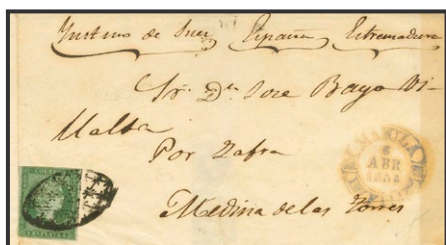 Ystmo de Suez España Estremadura
Sr. Dn. Jose Bayo Vi-
llalba
Por Zafra
Medina de las Torres
MANILA
6
ABR